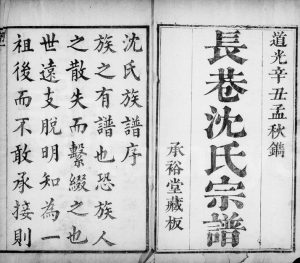 道光辛丑孟秋鐫
長巷沈氏宗譜
承裕堂藏板
沈氏族譜序
族之有譜也恐族人
之散失而繫綴之也
世遠支脱明知為一
祖後而不敢承接則